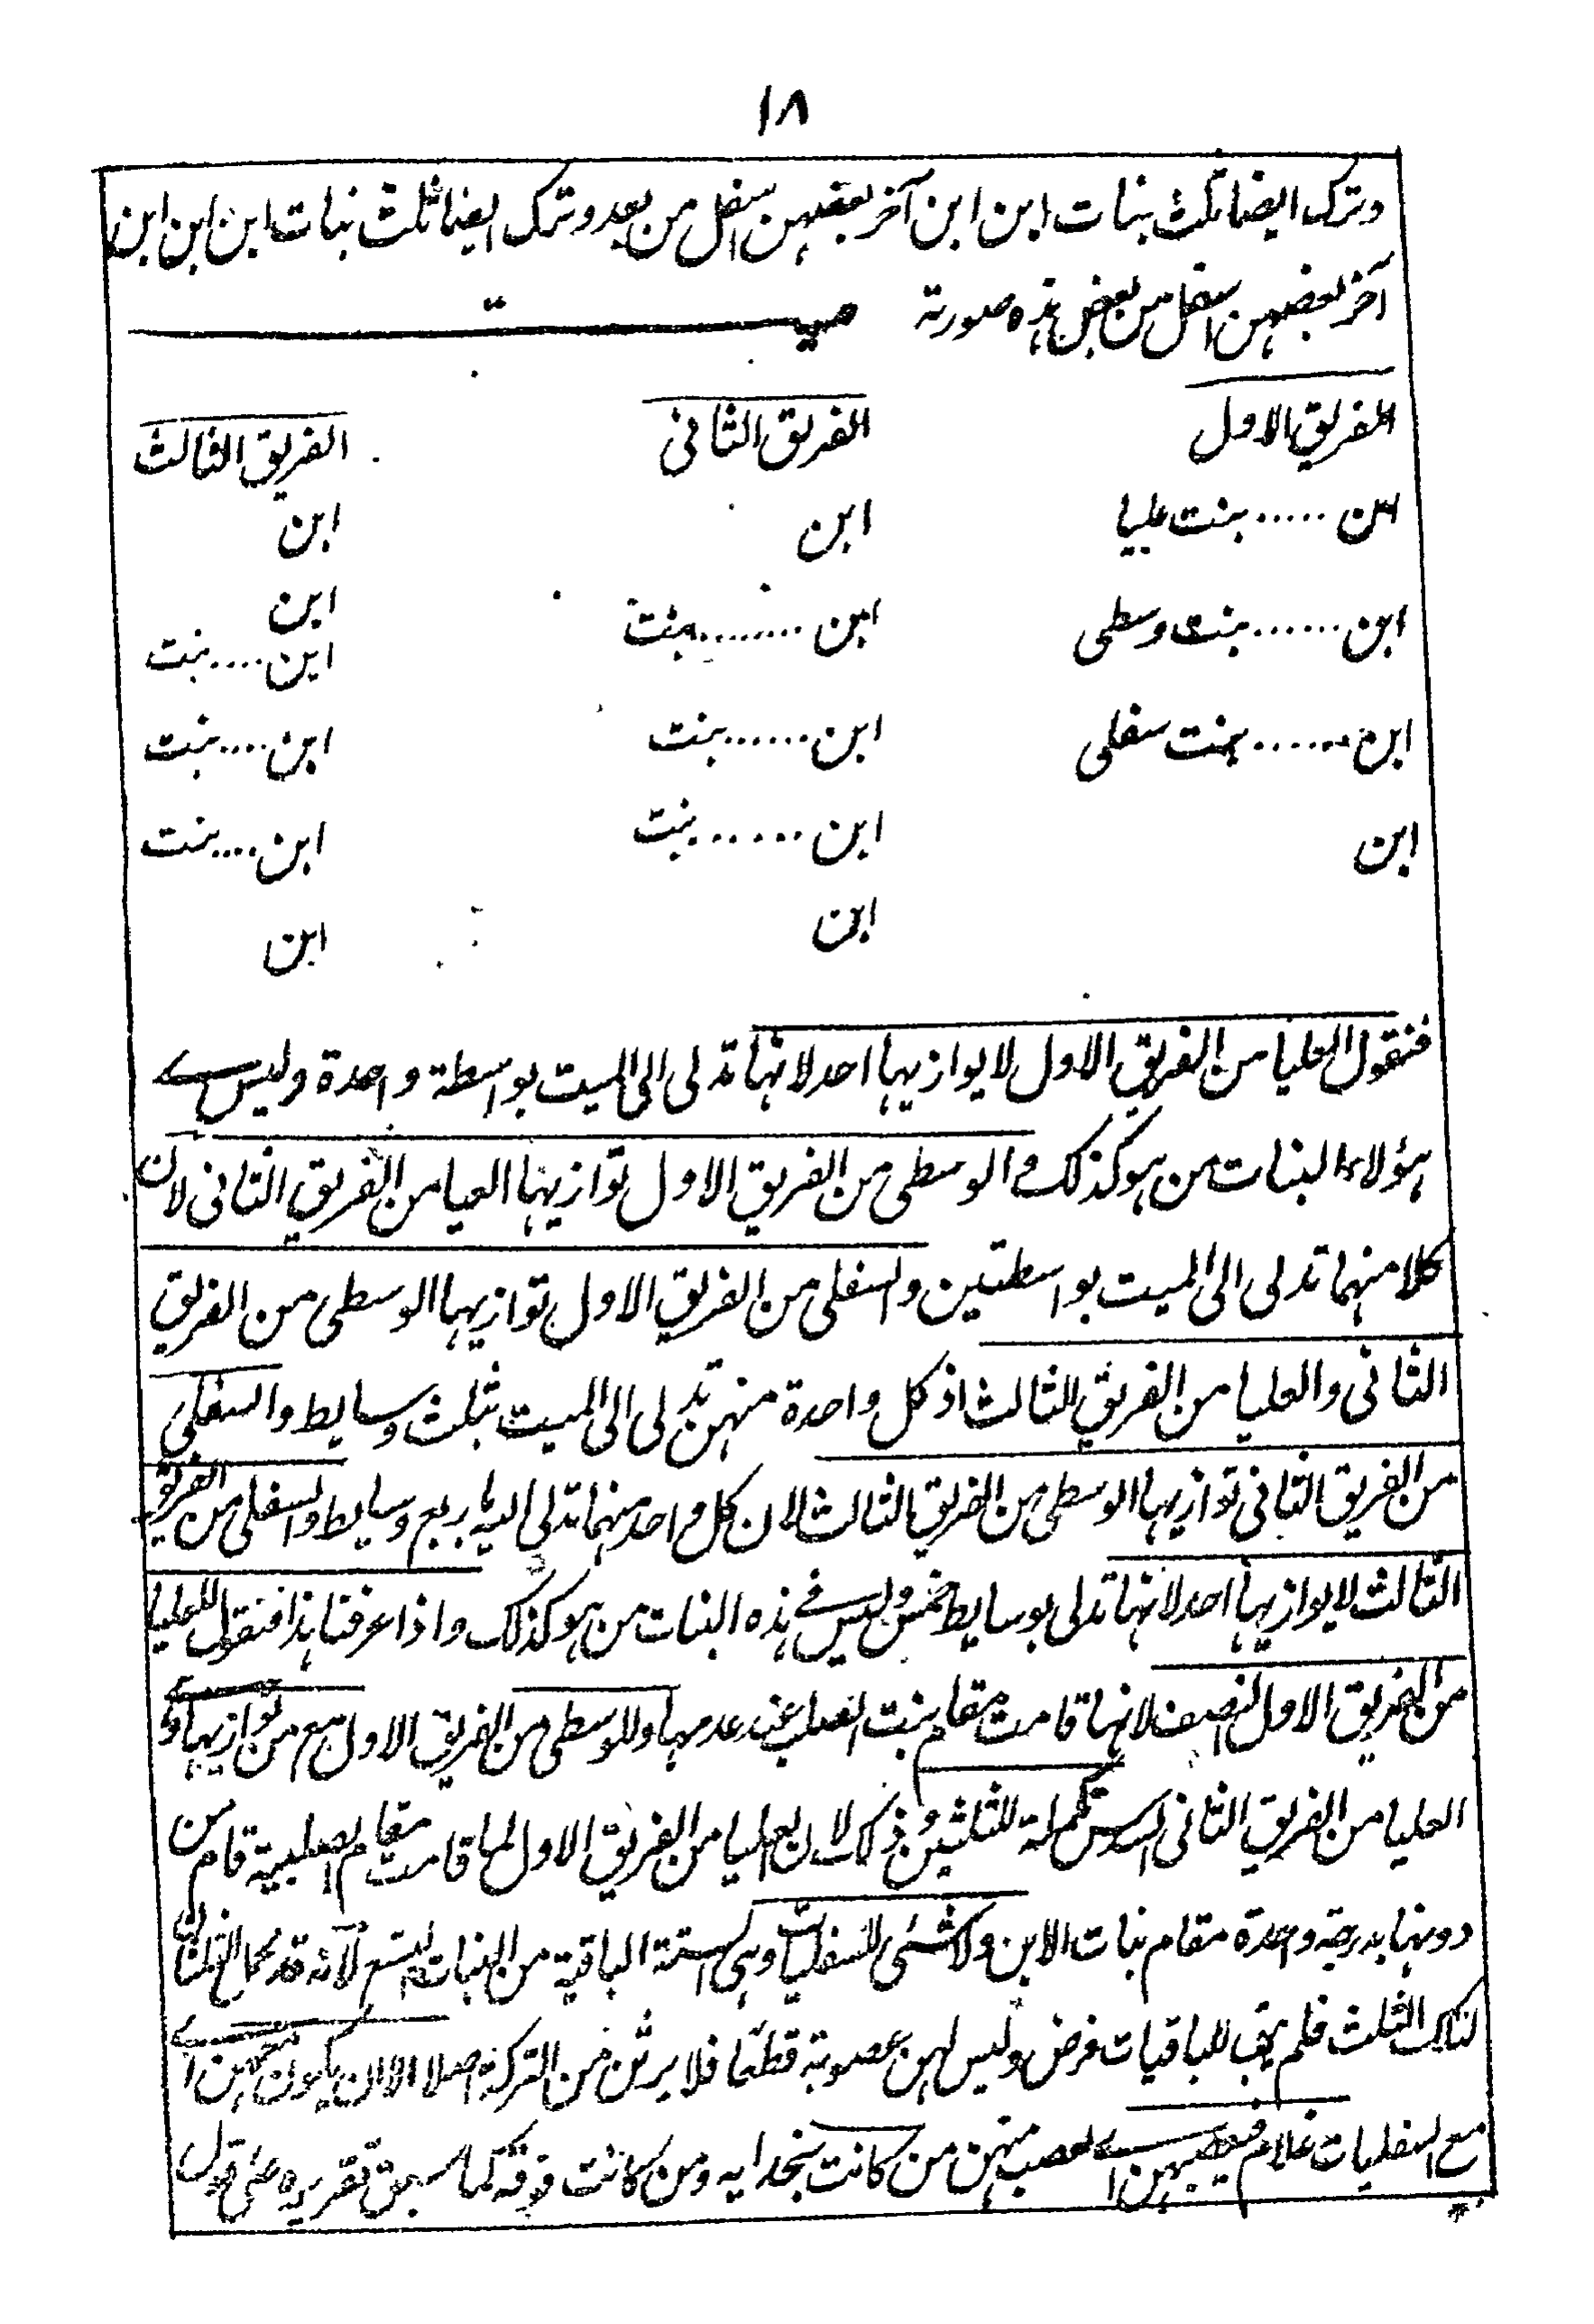 ١٨
وترك ايضا ثلث بنات ابن ابن آخر بعضهن اسفل من بعد وترك ايضا ثلث بنات ابن ابن ابن
آخر بعضهن اسفل من بعض هذه صورته ميـــت
الفريق الاول الفريق الثانى الفريق الثالث
ابن ..... بنت عليا ابن ابن
ابن
ابن ...... بنت وسطى ابن ........ بنت ابن .... بنت
ابن ...... بنت سفلى ابن ...... بنت ابن .... بنت
ابن ابن ...... بنت ابن .... بنت
ابن ابن
فنقول العليا من الفريق الاول لا يوازيها احد لانها تدلى الى الميت بواسطة واحدة وليس فے
هؤلاء البنات من هو كذلك والوسطى من الفريق الاول توازيها العيا من الفريق الثانى لان
كلا منهما تدلى الى الميت بواسطتين والسفلى من الفريق الاول توازيها الوسطى من الفريق
الثانى والعليا من الفريق الثالث اذ كل واحدة منهن تدلى الى الميت بثلث وسايط والسفلى
من الفريق الثانى توازيها الوسطى من الفريق الثالث لان كل واحد منهما تدلى اليه باربع وسايط والسفلى من الفريق
الثالث لا يوازيها احد لانها تدلى بوسايط خمس وليس فے هذه البنات من هو كذلك واذا عرفنا هذا فنقول للعليا
من الفريق الاول النصف لانها قامت مقام بنت الصلب عند عدمها وللوسطى من الفريق الاول مع من توازيها وے
العليا من الفريق الثانى السدس تكملة للثلثين وذلك لان العليا من الفريق الاول لما قامت مقام الصلبية قام من
دونها بدرجة واحدة مقام بنات الابن ولا شئى للسفليات وهى الستة الباقية من البنات التسع لانه قد كمل
الثلث فلم يبق للباقيات فرض وليس لهن عصوبة قطعا فلا يرثن من التركة اصلا الا ان يكون معهن اے
مع السفليات غلام فيعصبهن اے يعصب منهن من كانت بحذايه ومن كانت فوقه كما سبق تقريره على قول